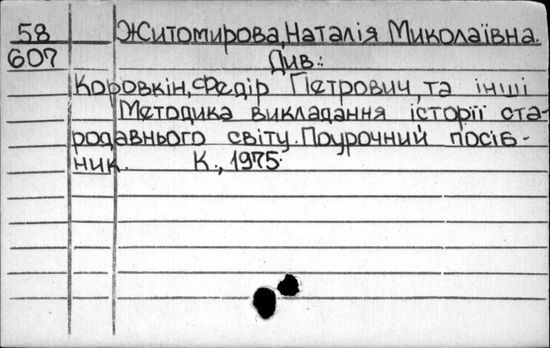 58 Житомирова, Наталія Миколаївна.
607 Див.:
Коровкін, Федір Петрович та інші
Методика викладання історії ста-
родавнього світу. Поурочний посіб-
ник. К., 1975.